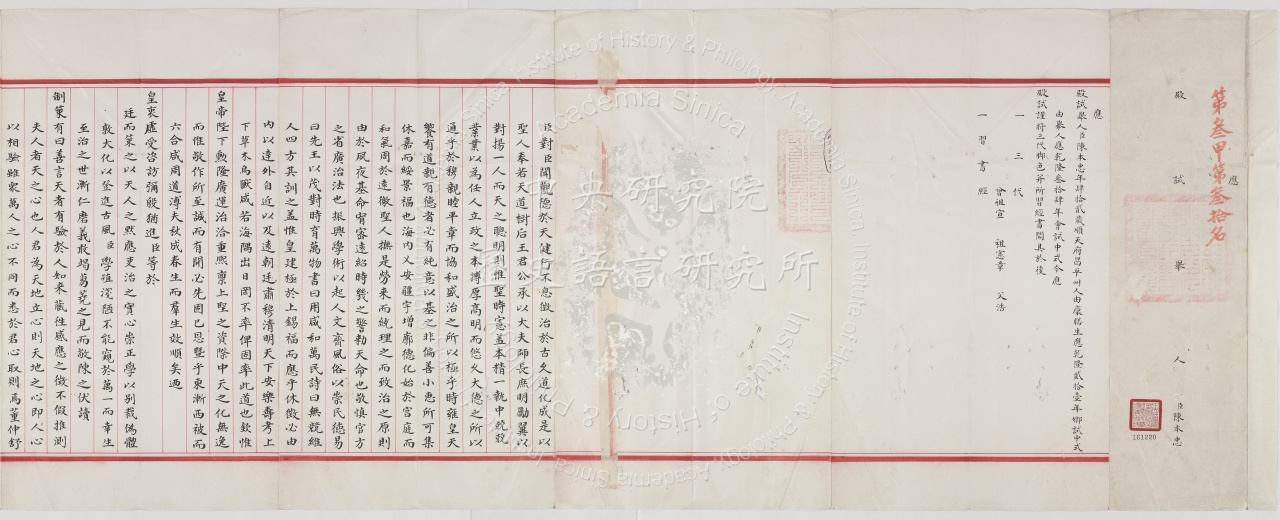 應
殿試舉人臣陳本忠
第叁甲第叁拾名
161220
應
殿試舉人臣陳本忠年肆拾貳歲順天府昌平州人由廩膳生應乾隆貳拾壹年鄉試中式
由舉人應乾隆叁拾肆年會試中式今應
殿試謹將三代鄉邑并所習經書開具於後
一三代
曾祖宣 祖憲章 父浩
一習書經
臣對臣聞觀德於天健行不息徵治於古久道化成是以
聖人奉若天道樹后王君公承以大夫師長庶明勵翼以
對揚一人而天之聰明則惟聖時憲蓋本精一執中兢兢
業業以為任人立政之本溥厚高明而悠久大德之所以
通乎於穆親睦平章而協和盛治之所以極乎時雍皇天
饗有道親有德者必有純意以基之非偏善小惠所可集
休嘉而綏景福也海內乂安疆宇增廓德化始於宮庭而
和氣周於遠徼聖人撫是勞來而統理之而致治之原則
由於夙夜基命宥密遠紹時幾之警勅天命也敬慎官方
之省廣治法也振興學術以起人文齊風俗以崇民德易
曰先王以茂對時育萬物書曰用咸和萬民詩曰無競維
人四方其訓之蓋惟皇建極於上錫福而應乎休徵必由
內以達外自近以及遠朝廷肅穆清明天下安樂壽考上
下草木鳥獸咸若海隅出日罔不率俾固率此道也欽惟
皇帝陛下勳隆廣運治洽重熙稟上聖之資際中天之化無逸
而惟敬作所至誠而有開必先固已恩暨乎東漸西被而
六合咸周道溥夫秋成春生而羣生效順矣迺
皇衷虛受咨訪彌殷猶進臣等於
廷而策之以天人之默應吏治之實心崇正學以別裁偽體
敦大化以丕進古風臣學殖淺陋不能窺於萬一而幸生
至治之世漸仁磨義敢竭蒭蕘之見而敬陳之伏讀
制策有曰善言天者有驗於人知來藏往感應之徵不假推測
夫人者天之心也人君為天地立心則天地之心即人心
以相驗雖眾萬人之心不同而悉於君心取則焉董仲舒
中央研究院
歷史語言研究所
Institute of History & Philology Academia Sinica